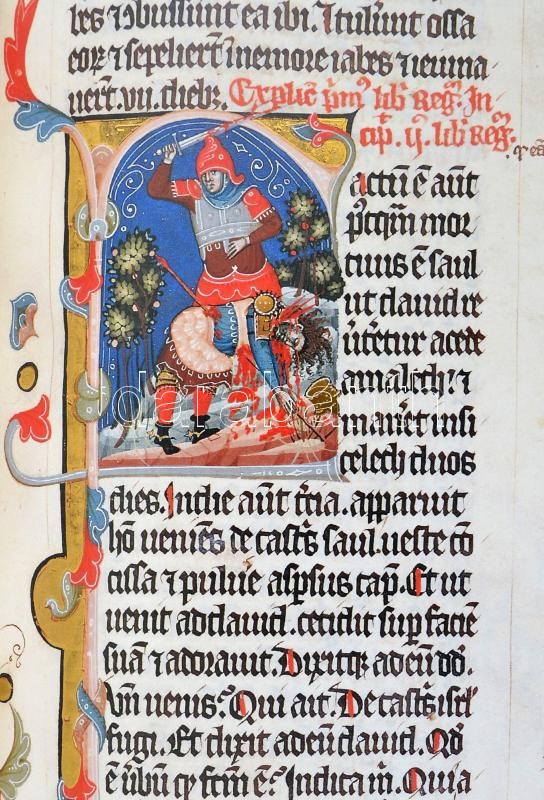 bes ⁊ ɔbusſunt ea ibi. Et tuler̄unt oſſa
eoꝝ ⁊ ſepelierūt ī nemore iabes ⁊ ieiuna
uerūt. vii. diebꝫ. Explic̄ p̄mꝰ lib̄ Reg̅. In
cip̄. ij. lib̄ Reg̅.
actū ē aūt
poſtqm̄ mor
tuus ē ſaul
ut dauid re
uͥteretur a cede
amalech: ⁊
maner̄et in ſi
celech duos
dies. In die aūt t̄cia. apparuit
hō ueniēs de caſtr̄s ſaul. ueſte cō
ciſſa ⁊ puluē aſpſus cap̄. Et ut
uenit ad dauid. cecidit ſup̄ faciē
ſuā ⁊ adorauit. Dixitqꝫ ad eū dd̄.
Vn̄ uenis? Qui ait. De caſtr̄s iſrl̄
fugi. Et dixit ad eū dauid. Qd̄
ē ūbū qꝫ fc̄m ē? Indica m̄. Quia
darabanth